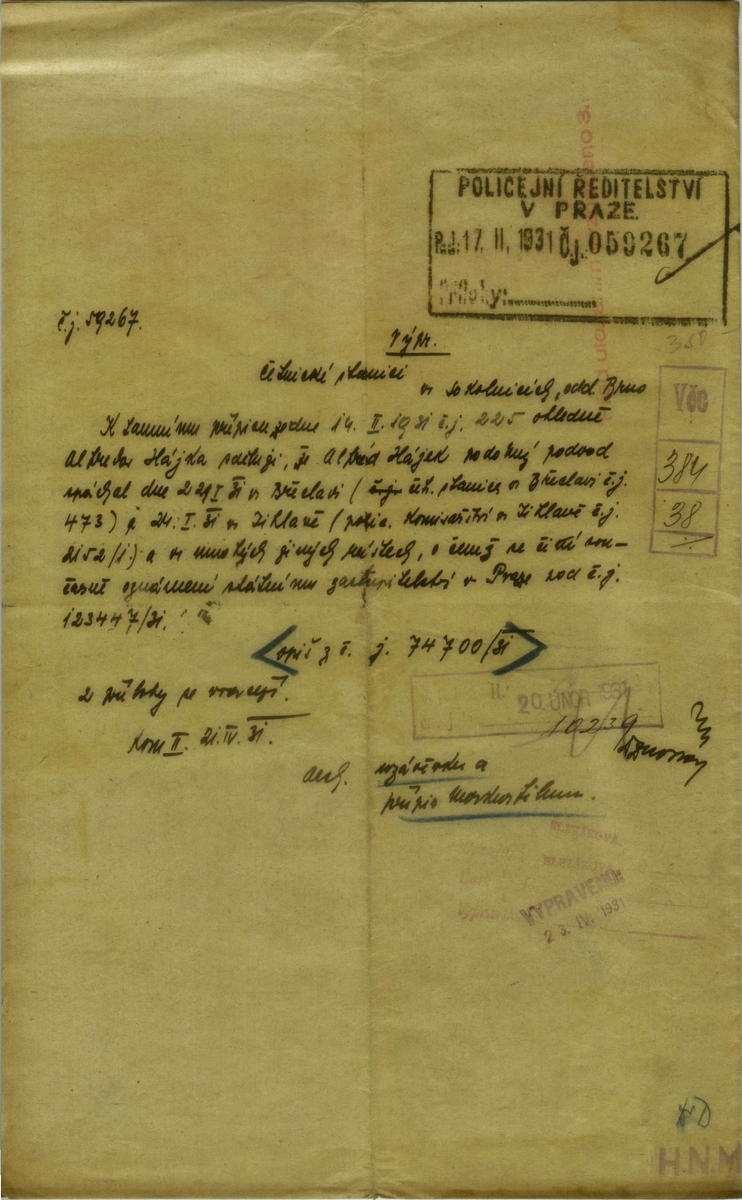 POLICEJNÍ ŘEDITELSTVÍ
V PRAZE.
Pod. 17. II. 1931 Čj. 059267
Přílohy:
č.j. 59267.
Výpr.
Četnické stanici
v Sokolnicích, odd. Brno
K tamnímu přípisu ze dne 14. II. 1931 č.j. 225 ohledně
Alfreda Hájka sděluji, že Alfred Hájek podobný podvod
spáchal dne 22/I 31 v Břeclavi ( čet. stanice v Břeclavi č.j.
473) a 24. I. 31 v Jihlavě (polic. komisařství v Jihlavě č.j.
2152/1) a v mnohých jiných místech, o čemž se činí sou-
časně oznámení státnímu zastupitelství v Praze pod č.j.
123447/31.
opis z č. j. 74700/31
2 přílohy se vracejí.
Kom II. 21. IV. 31.
20. ÚNOR 1931
10239
Věc
384
38
VYPRAVENO:
23. IV. 1931
H.N.M